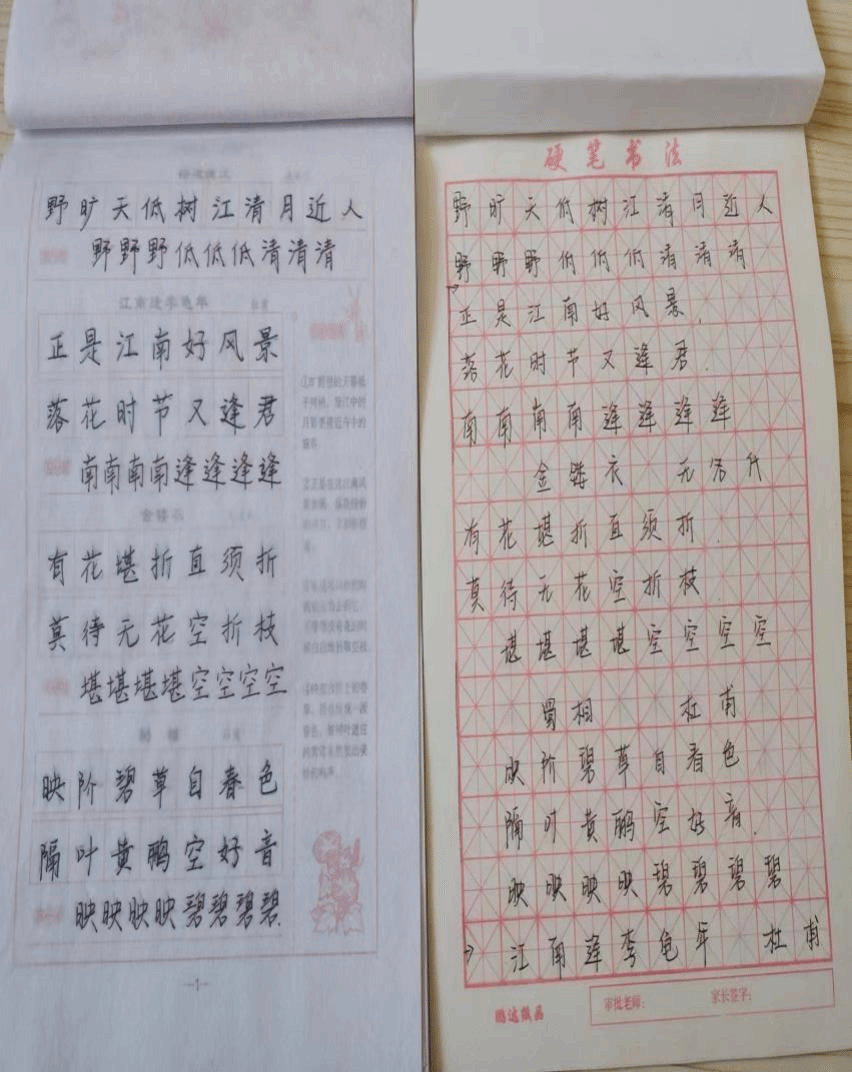 野旷天低树江清月近人
野野野低低低清清清
江南逢李龟年
正是江南好风景
落花时节又逢君
南南南南逢逢逢逢
金缕衣
有花堪折直须折
莫待无花空折枝
堪堪堪堪空空空空
蜀相
映阶碧草自春色
隔叶黄鹂空好音
映映映映碧碧碧碧
—1—
硬笔书法
野旷天低树江清月近人
野野野低低低清清清
正是江南好风景.
落花时节又逢君.
南南南南逢逢逢逢
金缕衣 无名氏
有花堪折直须折.
莫待无花空折枝.
堪堪堪堪空空空空
蜀相 杜甫
映阶碧草自春色
隔叶黄鹂空好音.
映映映映碧碧碧碧
江南逢李龟年 杜甫
审批老师: 家长签字: